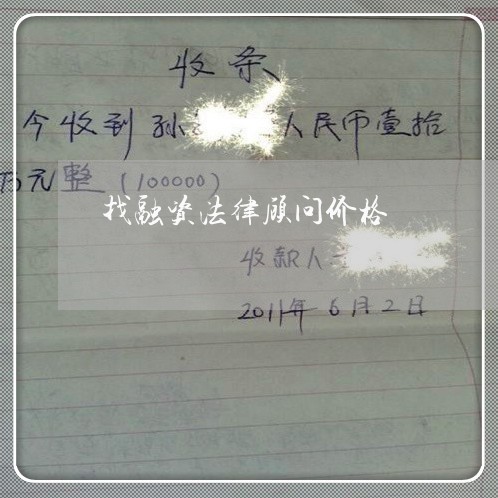 收条
今收到孙 人民币壹拾
万元整(100000)
找融资法律顾问价格
收款人
2011年6月2日